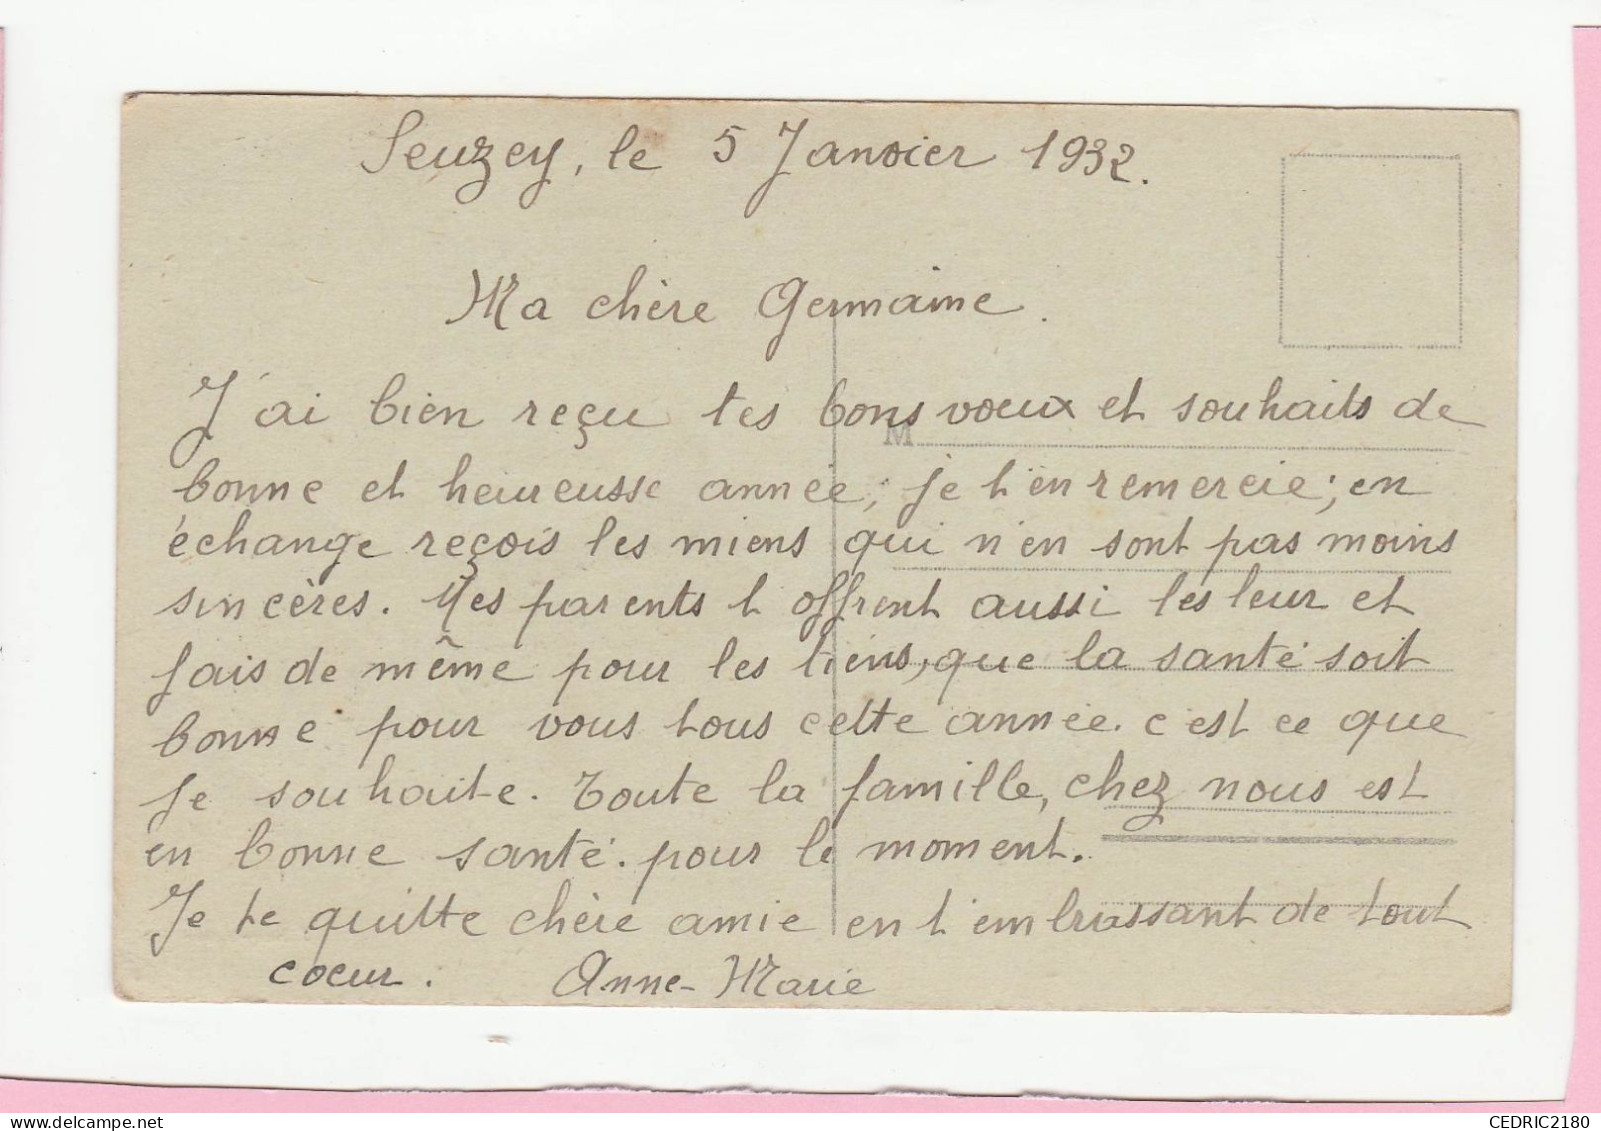 Seuzey, le 5 Janvier 1932.
Ma chère Germaine.
J'ai bien reçu tes bons vœux et souhaits de
M
bonne et heureusse année, je t'en remercie; en
échange reçois les miens qui n'en sont pas moins
sincères. Mes parents t'offrent aussi les leur et
fais de même pour les tiens, que la santé soit
bonne pour vous tous cette année. c'est ce que
je souhaite. Toute la famille, chez nous est
en bonne santé. pour le moment.
Je te quitte chère amie en t'embrassant de tout
coeur. Anne-Marie
CEDRIC2180